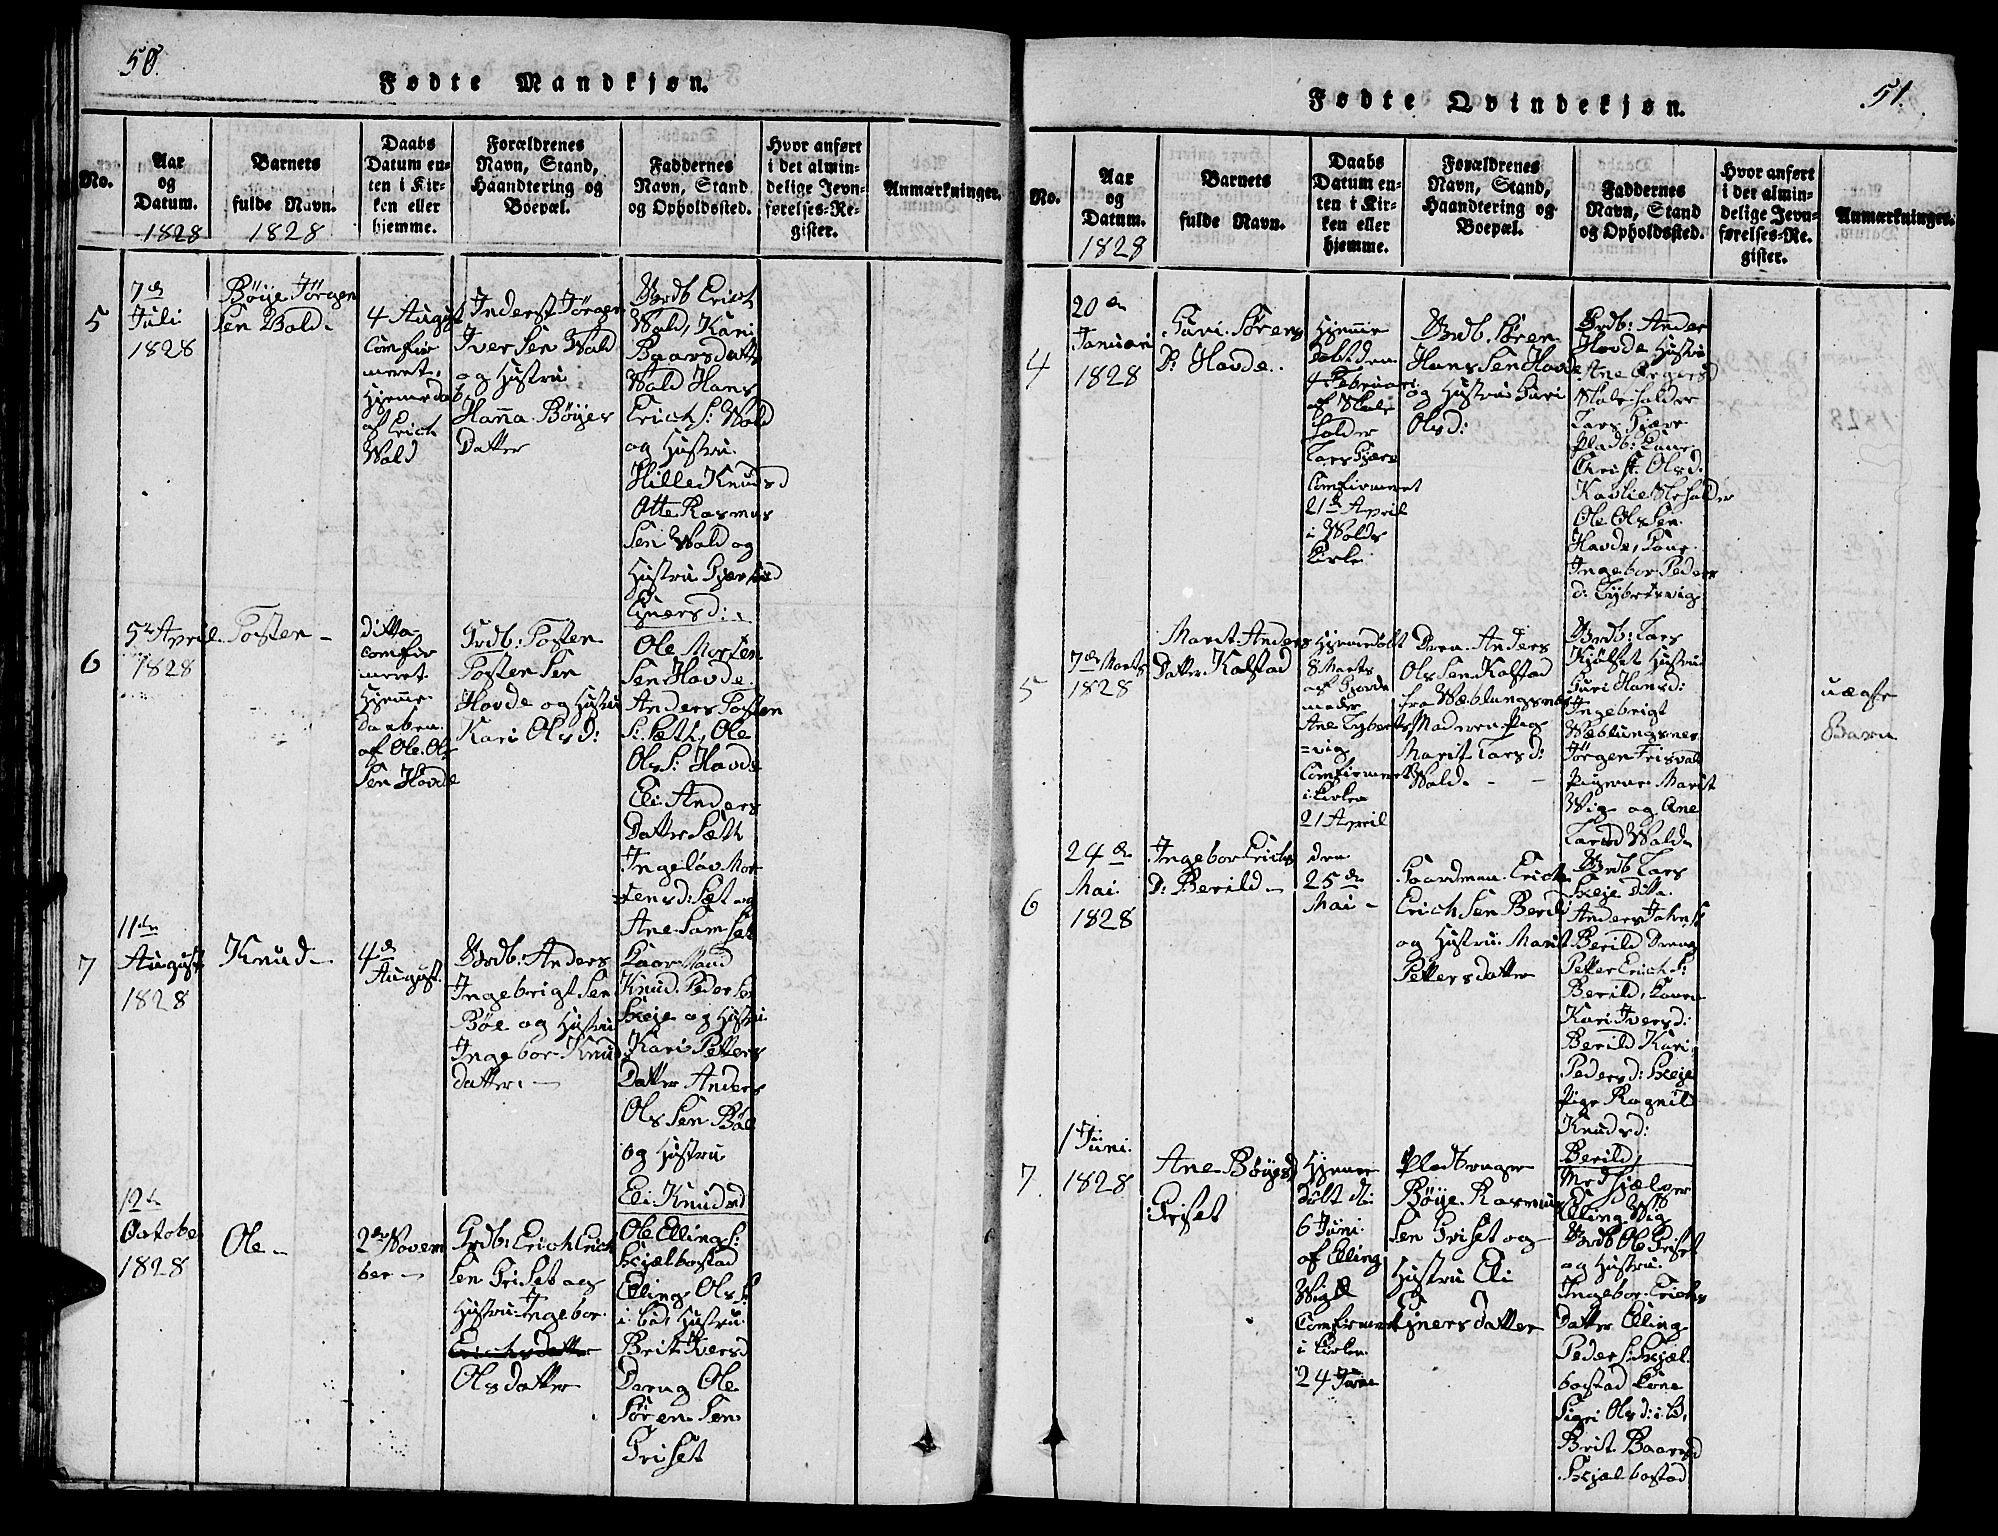 50.
Fødte Mandkjøn.
No.
Aar
og
Datum.
1828
Barnets
fulde Navn.
1828
Daabs
Datum en-
ten i Kir-
ken eller
hjemme.
Forældrenes
Navn, Stand,
Haandtering og
Boepæl.
Faddernes
Navn, Stand
og Opholdssted.
Hvor anført
i det almin-
delige Jevn-
førelses-Re-
gister.
Anmærkninger.
5
7de
Juli
1828
Böye Jörgen
Sen Vold.
4 August
Comfir
meret,
Hjemedøb
af Erich
Wald
Inderst Jörgen
Iver Sen Wald
og Hustru
Hanna Böyes
Datter
Brdb Erich
Wald, Kari
Baarsdatter
Wald Hans
Erich S: Wald
og Hustru
Hille Knudsd
Otte Rasmus
Sen Wald og
Hustru
Ejnersd:
6
5te April
1828
Tosten
ditto
comfir
meret
Hjemme
Daaben
af Ole Ols
Sen Hovde
Grdb: Tosten
Tosten Sen
Hovde og Hustru
Kari Olsd:
Ole Morten
Sen Hovde
Anders Tosten
S: Sæth, Ole
Ols S: Hovde
Eli Anders
Datter Sæth
Ingeløv Mor
tensd: Sæt og
Ane Sam Sæt
7
11te
August
1828
Knud
4de
August
Brdb: Anders
Ingebrigt Sen
Böe og Hustru
Ingebor Knuds
datter.
Knud Peder Sen
Skeje og Hustru
Kari Petters
Datter Anders
Ols Sen Böe
og Hustru
Eli Knudsd
12te
October
1828
Ole
2de Novem
ber
Grdb: Erich Erich
Sen Griset og
Hustru Ingebor
Olsdatter
Ole Elling S:
Skjælbostad
Elling Ols S:
ibd, Hustru
Brit Iversd
Dreng Ole
Sören Sen
Griset
51.
Fødte Qvindekjøn.
No.
Aar
og
Datum.
1828
Barnets
fulde Navn.
Daabs
Datum en-
ten i Kir-
ken eller
hjemme.
Forældrenes
Navn, Stand,
Haandtering og
Boepæl.
Faddernes
Navn, Stand
og Opholdssted.
Hvor anført
i det almin-
delige Jevn-
førelses-Re-
gister.
Anmærkninger.
4
20de
Januari
1828
Guri Sörens
D: Hovde.
Hjemme
döbt den
4 Februari
af Skole
holder
Lars Gjære
Comfirmeret
21de April
i Wolds
Kirke
Brdb. Sören
Hans Sen Hovde
og Hustru Guri
Olsd:
Brdb: Ander
Hovde Hustru
Ane
Skoleholder
Lars Gjære
Pladb: Kone
Christ. Olsd.
Ole Ols Sen
Hovde, Kone
Ingebor Peders
d:
5
7de Marts
1828
Marit Anders
Datter Kolstad
Hjemedöbt
8 Marts
af Gjorde
moder
Ane
=vig
Comfirmeret
i Kirken
21 April
Dren. Anders
Ols Sen Kolstad
fra Wæblungsnes
Moderen Pige
Marit Lars d:
Wold.
Brdb: Lars
Hustru
Guri Hansd:
Ingebrigt
Wæblungsnes
Jörgen
Pigerne Marit
Wig og Ane
Larsd Wold
uægte
Barn
6
24de
Mai
1828
Ingebor Erichs
D: Berild
den
25de
Mai
Gaardman Erich
Erich Sen Berild
og Hustru Marit
Pettersdatter
Brdb Lars
Skeje ditto
Anders John S:
Berild Dreng
Petter Erich S:
Berild, Konen
Kari Iversd:
Berild Kari
Pedersd: Skeje
Pige Ragnild
Knudsd:
Berild
7.
1 Juni
1828
Ane Böyesd
Griset
Hjeme
Döbt d:
6 Juni
af Elling
Wig
Comfirmeret
i Kirken
24 Juni
Pladbruger
Böye Rasmus
Sen Griset og
Hustru Eli
Ejnersdatter
Medhjælper
Elling Wig
Brdb Ole Griset
og Hustru
Ingebor Erichs
Datter Elling
Peder S: Skjæl
bostad Kone
Sigri Olsd: i b,
Brit Baarsd
Skjælbostad